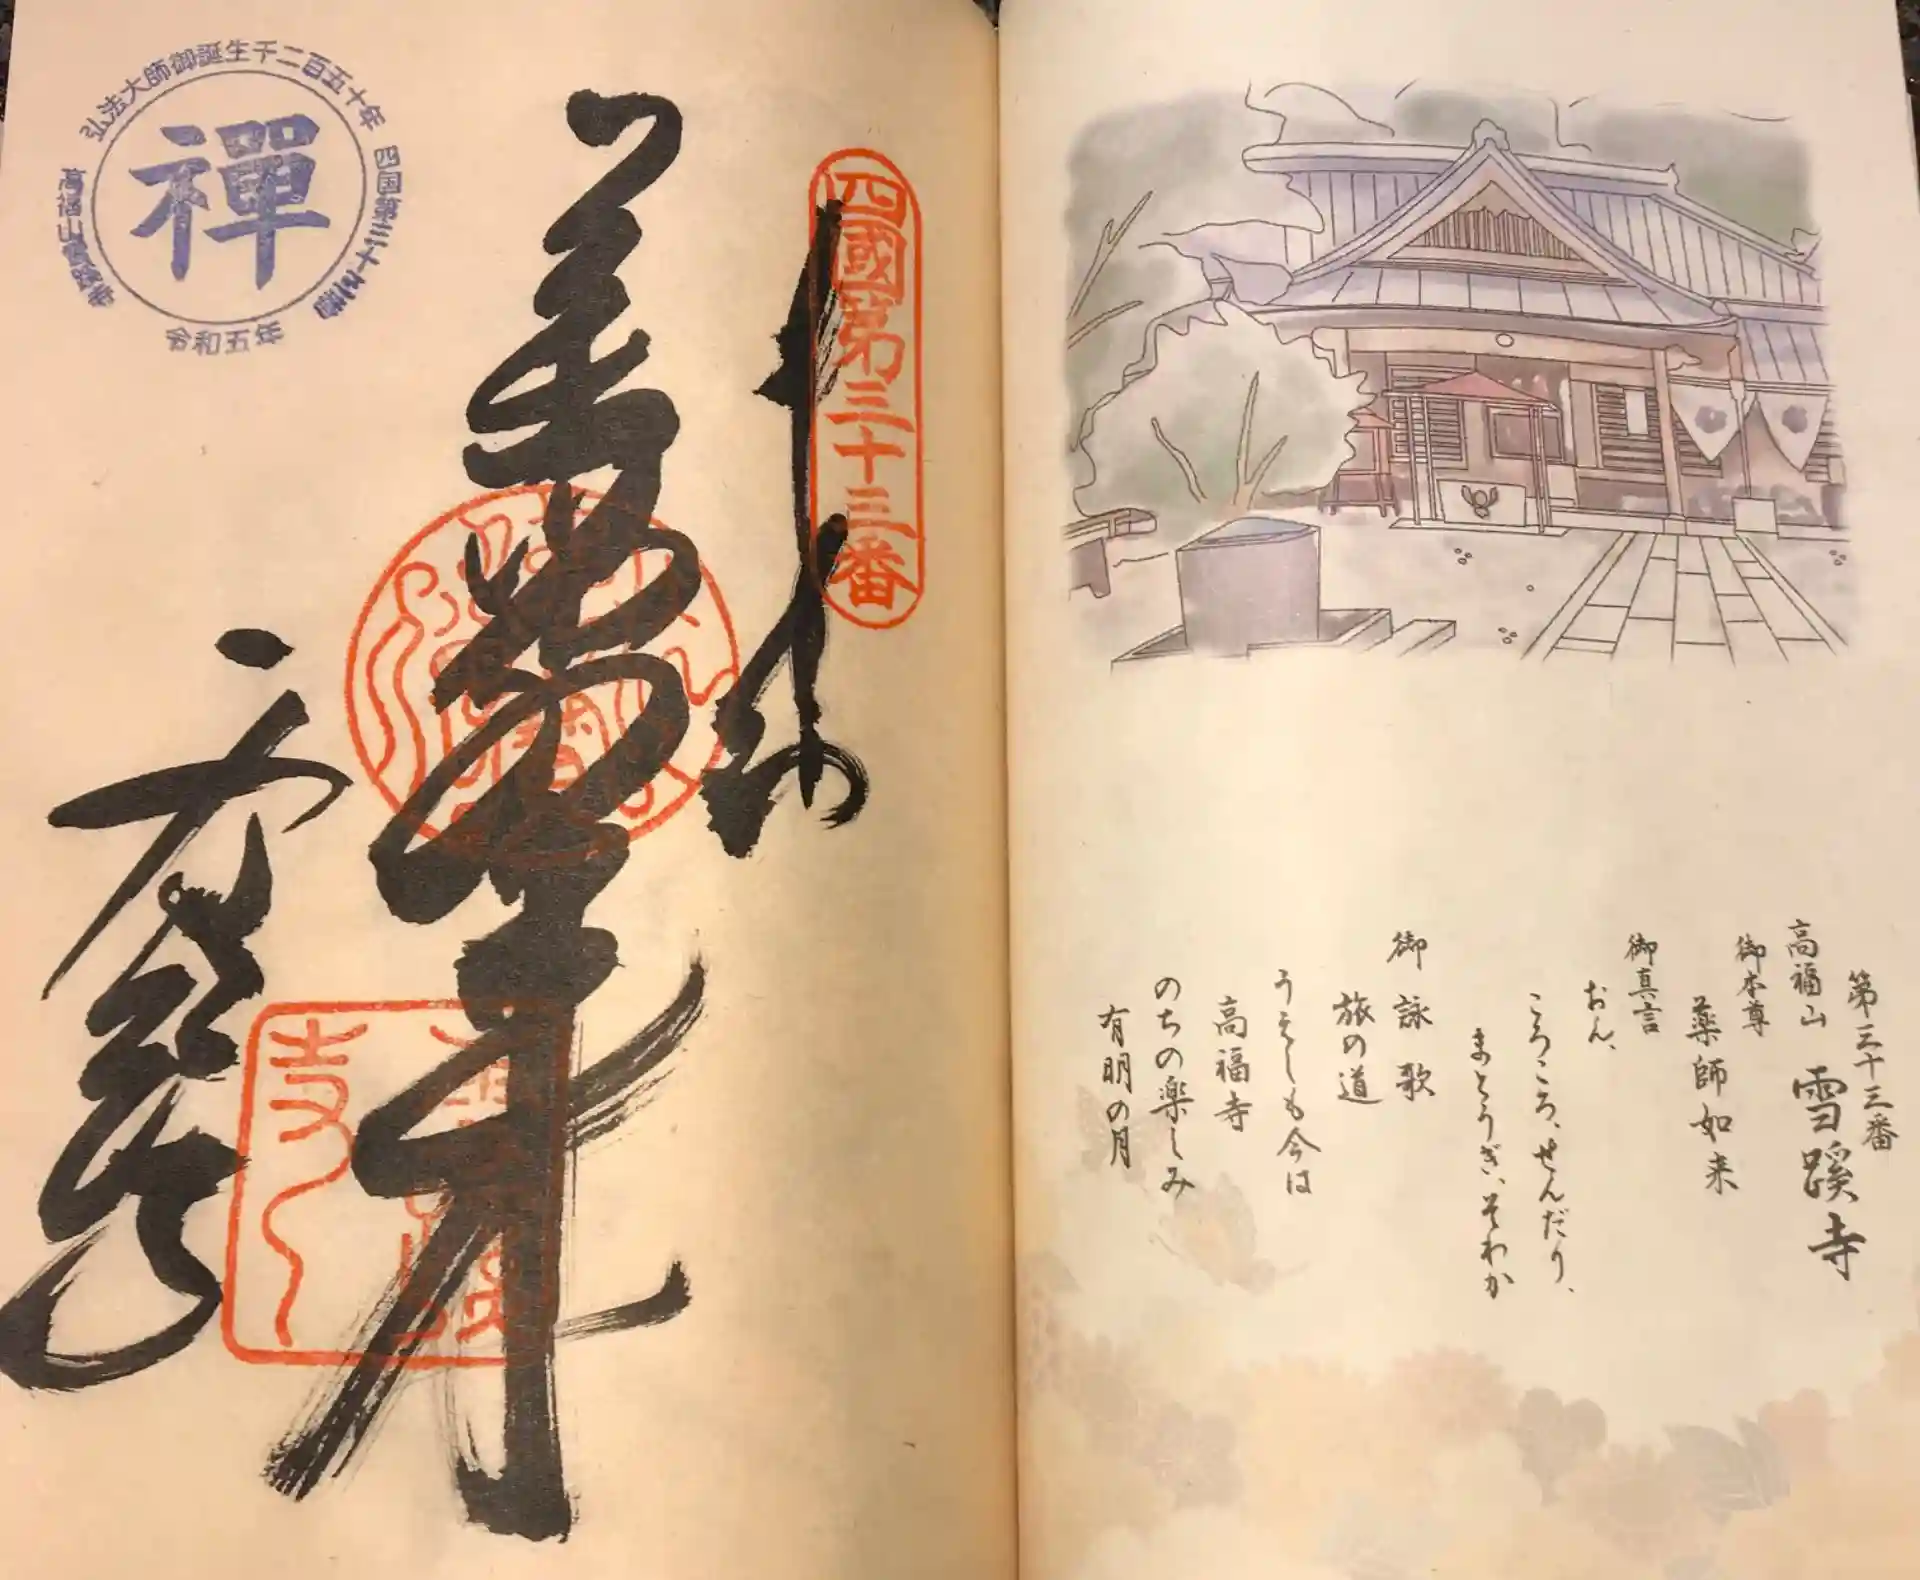 第三十三番
高福山 雪蹊寺
御本尊
薬師如来
御真言
おん、
ころころ、せんだり、
まとうぎ、そわか
御詠歌
旅の道
うえしも今は
高福寺
のちの楽しみ
有明の月
四國第三十三番
弘法大師御誕生千二百五十年
四国第三十三番
高福山雪蹊寺
禅
令和五年